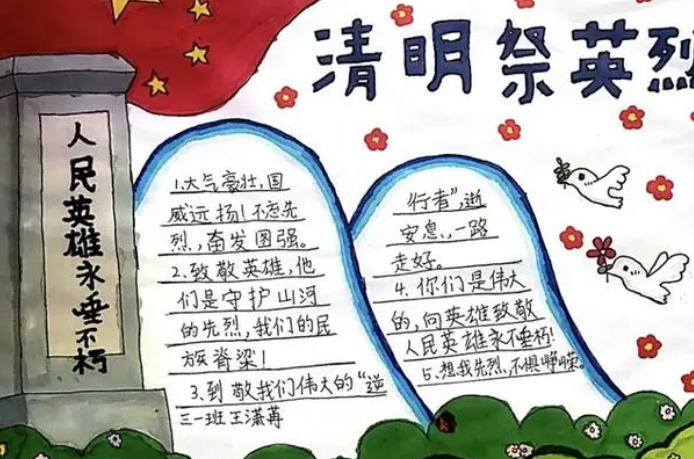 清明祭英烈
人民英雄永垂不朽
1.大气豪壮,国
威远扬!不忘先
烈,奋发图强。
2.致敬英雄,他
们是守护山河
的先烈,我们的民
族脊梁!
3.到敬我们伟大的“逆
三一班王潇苒
行者”,逝
安息,一路
走好。
4.你们是伟大
的,向英雄致敬
人民英雄永垂不朽!
5.想我先烈,不惧峥嵘。